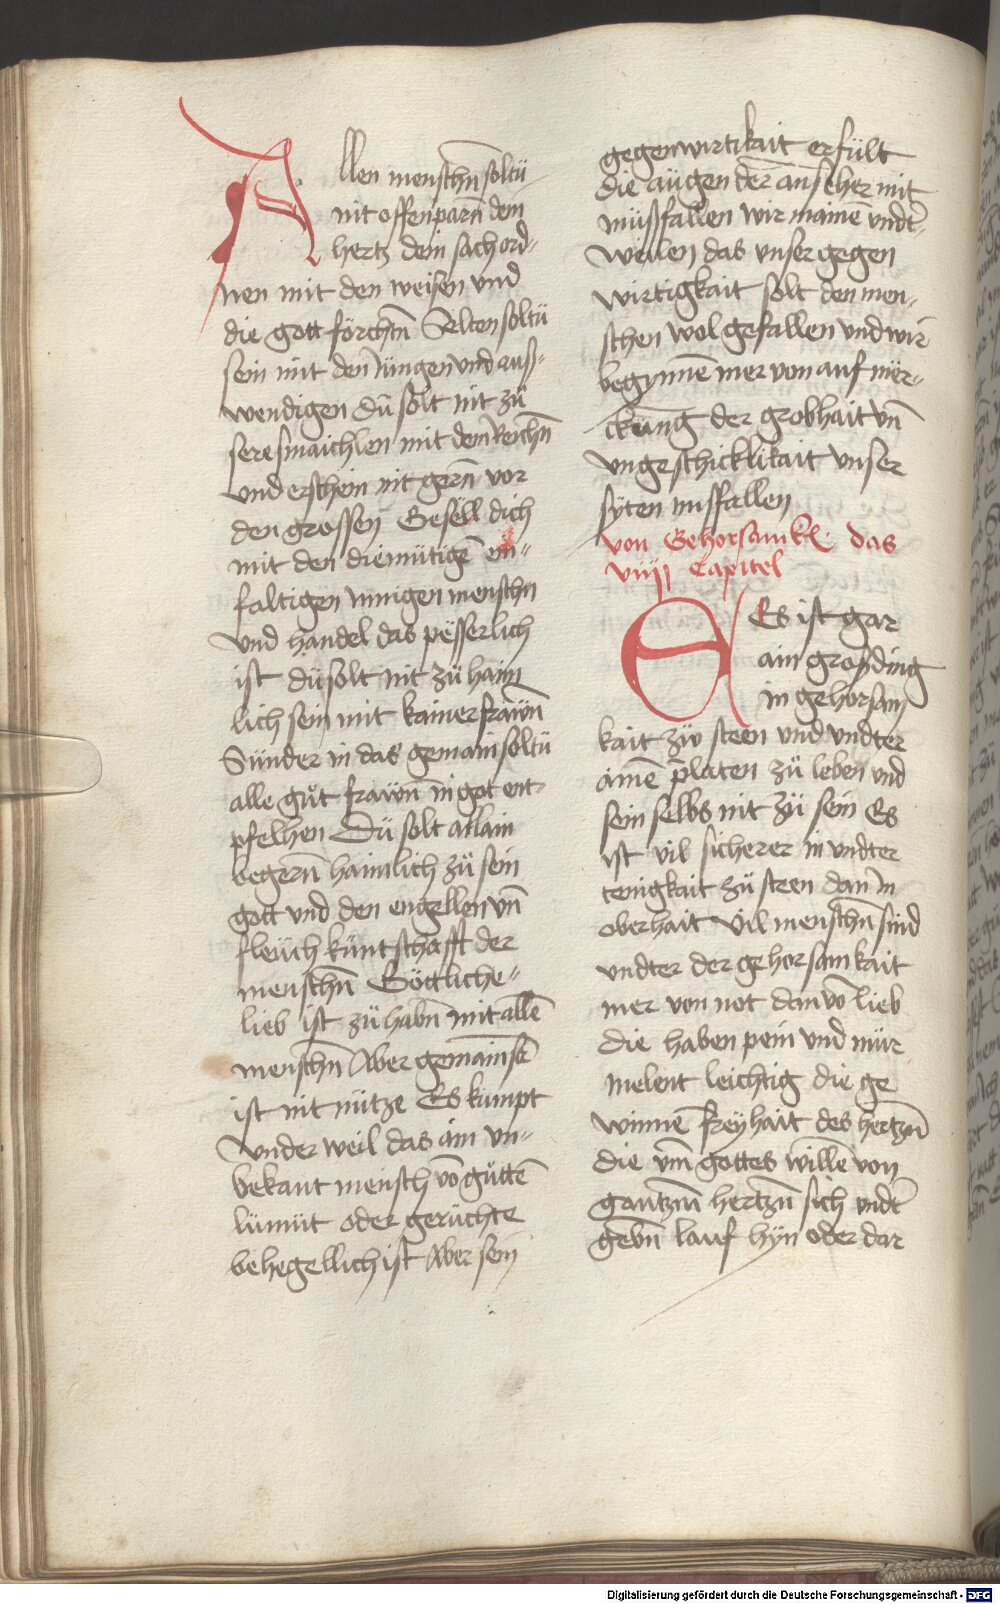 Allen menschn̄ soltü
nit offenparn̄ dem
hertz dein sach ord-
nen mit den weisen vnd
die gott förchtn̄ Selten soltü
sein mit den Jüngen vnd auß-
wendigen dü solt nit zü
sere smaichlen mit den Reichn̄
vnd erschein nit gern̄ vor
den grossen Gesell dich
mit den diemütigē ein-
faltigen Innigen menschn
vnd handel das pësserlich
ist düsolt nit zü haim
lich sein mit kainer frawn̄
Sünder in das gemain soltü
alle güt frawn̄ in got ent-
pfelhen Dü solt allain
begern̄ haimlich zü sein
gott vnd den engellen vn̄
fleüch küntschafft der
menschn̄ Göttliche-
lieb ist zü habn̄ mit allē
menschn̄ Aber gemainsē
ist nit nütze Es kumpt
vnder weil das ain vn-
bekant mensch vō güttē
lümüt oder gerüchte
behegellich ist Aber sein
gegenwirtikait erfült
die aügen der an seher mit
müßfallen wir mainē vndt̄-
weilen das vnser gegen
wirtigkait solt den men-
schen wol gefallen vnd wir
begynnē mer von auf mër-
ckung der grobhait vn̄
vngeschicklikait vnser
syten misfallen
von Gehorsamkt̄ das
viiij Capitel
Es ist gar
ain groß ding
in gehorsam
kait züo steen vnd vndter
ainē p̄laten zü leben vnd
sein selbs nit zü sein Es
ist vil sicherer in vndter
tenigkait zü steen dan in
oberhait vil menschn̄ sind
vndter der gehorsamkait
mer von not dan vō lieb
die haben pein vnd mür
melent leichtig die ge
winnē freyhait des hertzn̄
die vm̄ gottes willē von
gantzm̄ hertzn̄ sich vndt̄
gebn̄ lauf hyn oder dar